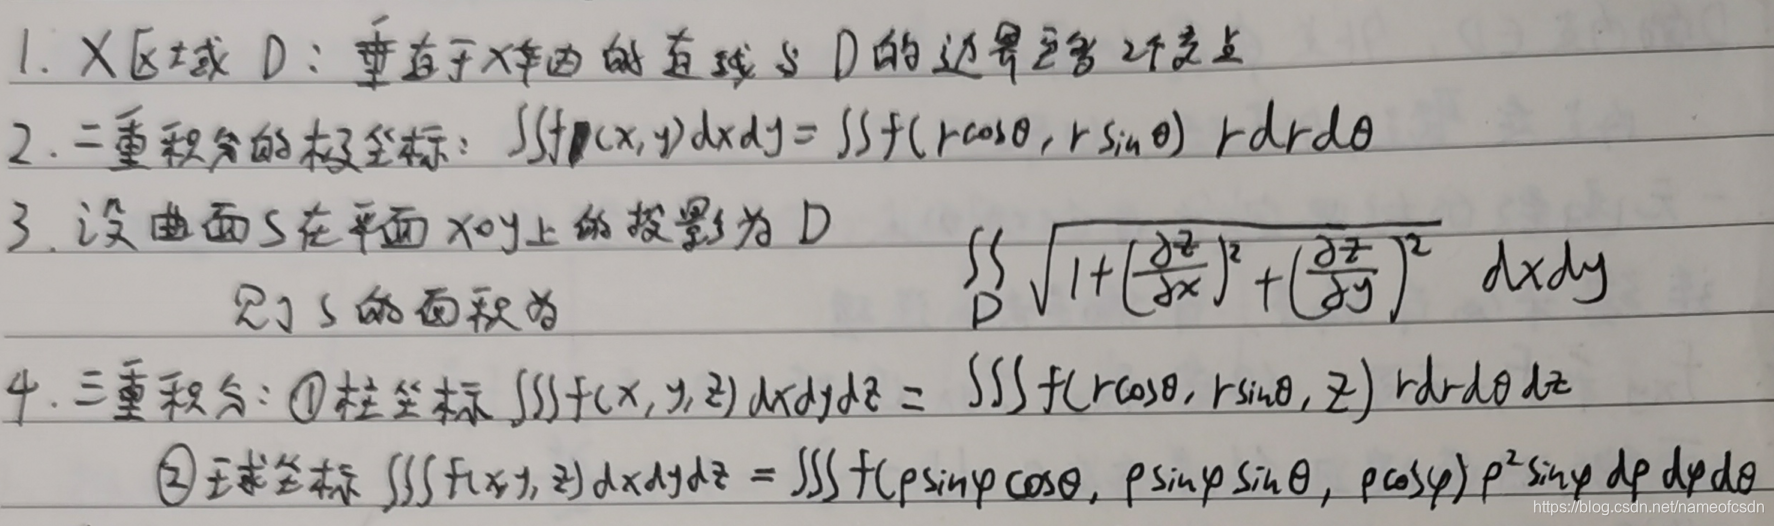 1. X区域 D：垂直于X轴的直线与D的边界至多2个交点
2. 二重积分的极坐标：∫∫f(x,y)dxdy=∫∫f(rcosθ, rsinθ) rdrdθ
3. 设曲面S在平面xoy上的投影为D
则S的面积为 ∬_D √(1+(∂z/∂x)²+(∂z/∂y)²) dxdy
4. 三重积分：①柱坐标 ∫∫∫f(x,y,z)dxdydz = ∫∫∫f(rcosθ, rsinθ, z) rdrdθdz
②球坐标 ∫∫∫f(x,y,z)dxdydz = ∫∫∫f(ρsinφcosθ, ρsinφsinθ, ρcosφ)ρ²sinφdρdφdθ
https://blog.csdn.net/nameofcsdn